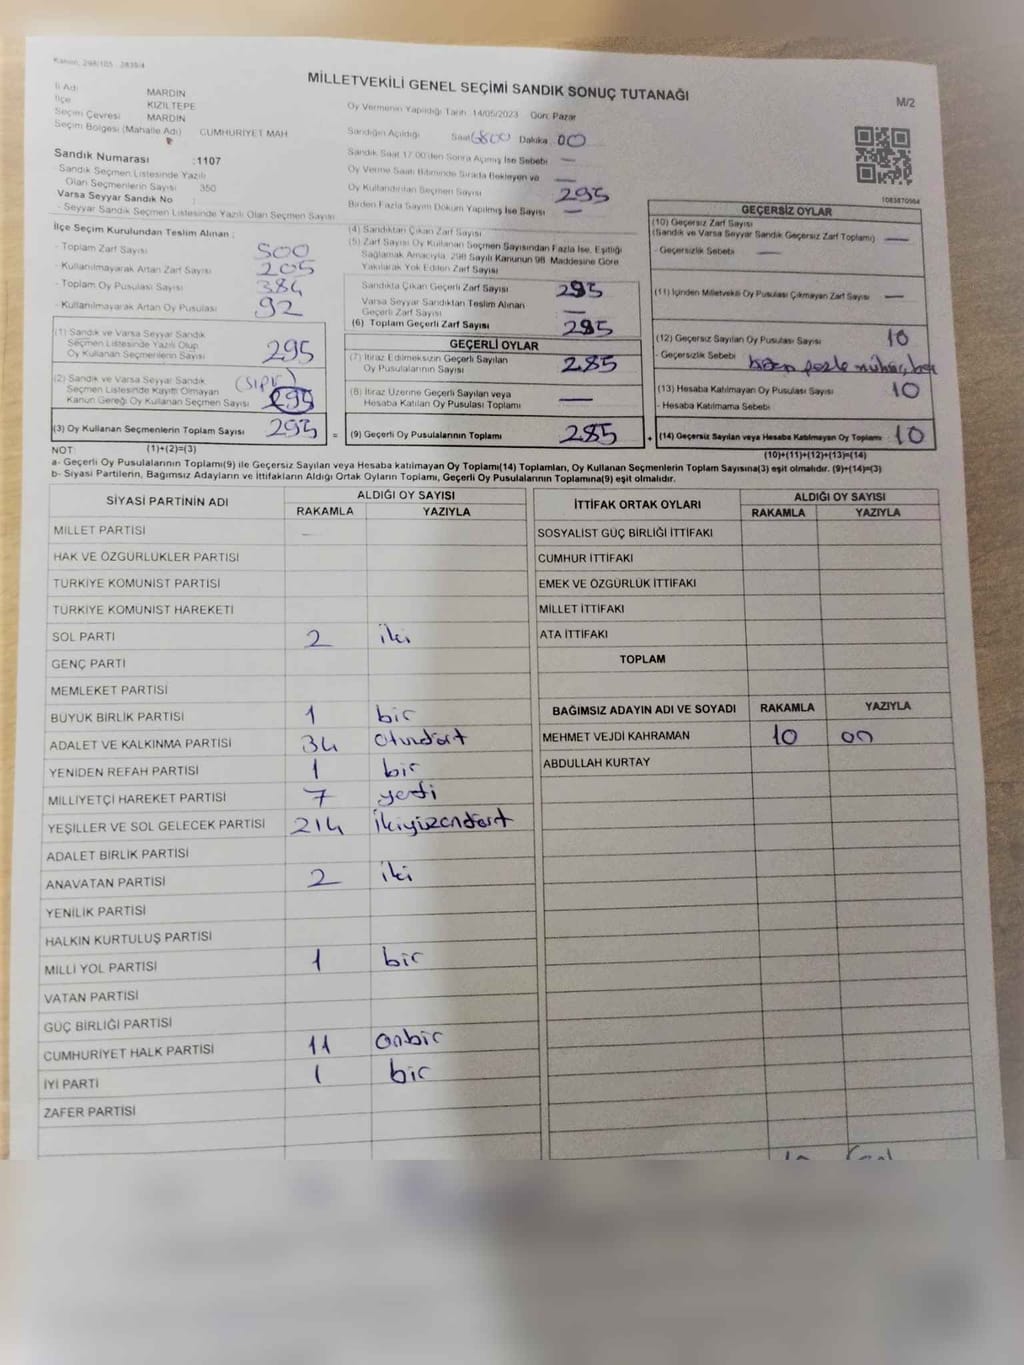 Kanun, 298/105 - 2839/4
MİLLETVEKİLİ GENEL SEÇİMİ SANDIK SONUÇ TUTANAĞI
M/2
İl Adı MARDİN
İlçe KIZILTEPE
Seçim Çevresi MARDİN
Seçim Bölgesi (Mahalle Adı) CUMHURİYET MAH
Sandık Numarası :1107
Sandık Seçmen Listesinde Yazılı
Olan Seçmenlerin Sayısı 350
Varsa Seyyar Sandık No :
- Seyyar Sandık Seçmen Listesinde Yazılı Olan Seçmen Sayısı
Oy Vermenin Yapıldığı Tarih: 14/05/2023 Gün: Pazar
Sandığın Açıldığı Saat Dakika 00
Sandık Saat 17:00'den Sonra Açılmış İse Sebebi —
Oy Verme Saati Bitiminde Sırada Bekleyen ve —
Oy Kullandırılan Seçmen Sayısı 295
Birden Fazla Sayım Döküm Yapılmış İse Sayısı —
1083870564
İlçe Seçim Kurulundan Teslim Alınan :
- Toplam Zarf Sayısı 500
- Kullanılmayarak Artan Zarf Sayısı 205
- Toplam Oy Pusulası Sayısı 384
- Kullanılmayarak Artan Oy Pusulası 92
(1) Sandık ve Varsa Seyyar Sandık
Seçmen Listesinde Yazılı Olup
Oy Kullanan Seçmenlerin Sayısı 295
(2) Sandık ve Varsa Seyyar Sandık
Seçmen Listesinde Kayıtlı Olmayan
Kanun Gereği Oy Kullanan Seçmen Sayısı 295
(3) Oy Kullanan Seçmenlerin Toplam Sayısı 295
(4) Sandıktan Çıkan Zarf Sayısı
(5) Zarf Sayısı Oy Kullanan Seçmen Sayısından Fazla İse, Eşitliği
Sağlamak Amacıyla, 298 Sayılı Kanunun 98. Maddesine Göre
Yakılarak Yok Edilen Zarf Sayısı
Sandıkta Çıkan Geçerli Zarf Sayısı 295
Varsa Seyyar Sandıktan Teslim Alınan
Geçerli Zarf Sayısı —
(6) Toplam Geçerli Zarf Sayısı 295
GEÇERLİ OYLAR
(7) İtiraz Edilmeksizin Geçerli Sayılan
Oy Pusulalarının Sayısı 285
(8) İtiraz Üzerine Geçerli Sayılan veya
Hesaba Katılan Oy Pusulası Toplamı —
(9) Geçerli Oy Pusulalarının Toplamı 285
GEÇERSİZ OYLAR
(10) Geçersiz Zarf Sayısı
(Sandık ve Varsa Seyyar Sandık Geçersiz Zarf Toplamı) —
- Geçersizlik Sebebi —
(11) İçinden Milletvekili Oy Pusulası Çıkmayan Zarf Sayısı —
(12) Geçersiz Sayılan Oy Pusulası Sayısı 10
- Geçersizlik Sebebi
(13) Hesaba Katılmayan Oy Pusulası Sayısı 10
- Hesaba Katılmama Sebebi
(14) Geçersiz Sayılan veya Hesaba Katılmayan Oy Toplamı 10
NOT: (1)+(2)=(3)
(10)+(11)+(12)+(13)=(14)
a- Geçerli Oy Pusulalarının Toplamı(9) ile Geçersiz Sayılan veya Hesaba katılmayan Oy Toplamı(14) Toplamları, Oy Kullanan Seçmenlerin Toplam Sayısına(3) eşit olmalıdır. (9)+(14)=(3)
b- Siyasi Partilerin, Bağımsız Adayların ve İttifakların Aldığı Ortak Oyların Toplamı, Geçerli Oy Pusulalarının Toplamına(9) eşit olmalıdır.
SİYASİ PARTİNİN ADI ALDIĞI OY SAYISI
RAKAMLA YAZIYLA
MİLLET PARTİSİ —
HAK VE ÖZGÜRLÜKLER PARTİSİ
TÜRKİYE KOMÜNİST PARTİSİ
TÜRKİYE KOMÜNİST HAREKETİ
SOL PARTİ 2 iki
GENÇ PARTİ
MEMLEKET PARTİSİ
BÜYÜK BİRLİK PARTİSİ 1 bir
ADALET VE KALKINMA PARTİSİ 34 otuzdört
YENİDEN REFAH PARTİSİ 1 bir
MİLLİYETÇİ HAREKET PARTİSİ 7 yedi
YEŞİLLER VE SOL GELECEK PARTİSİ 214 ikiyüzondört
ADALET BİRLİK PARTİSİ
ANAVATAN PARTİSİ 2 iki
YENİLİK PARTİSİ
HALKIN KURTULUŞ PARTİSİ
MİLLİ YOL PARTİSİ 1 bir
VATAN PARTİSİ
GÜÇ BİRLİĞİ PARTİSİ
CUMHURİYET HALK PARTİSİ 11 onbir
İYİ PARTİ 1 bir
ZAFER PARTİSİ
İTTİFAK ORTAK OYLARI ALDIĞI OY SAYISI
RAKAMLA YAZIYLA
SOSYALİST GÜÇ BİRLİĞİ İTTİFAKI
CUMHUR İTTİFAKI
EMEK VE ÖZGÜRLÜK İTTİFAKI
MİLLET İTTİFAKI
ATA İTTİFAKI
TOPLAM
BAĞIMSIZ ADAYIN ADI VE SOYADI RAKAMLA YAZIYLA
MEHMET VEJDİ KAHRAMAN 10 on
ABDULLAH KURTAY